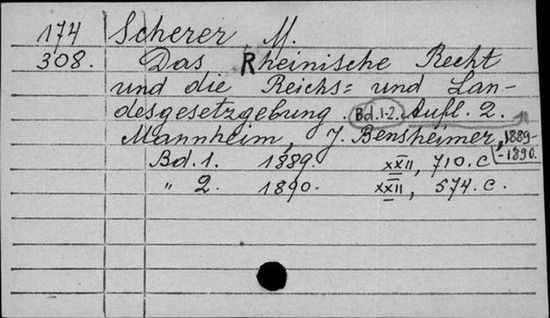 174 Scherer, M.
308. Das Rheinische Recht
und die Reichs= und Lan-
desgesetzgebung. Bd.1-2. Aufl. 2.
Mannheim, J. Bensheimer, 1889-
-1890.
Bd. 1. 1889. XXII, 710. c.
" 2. 1890. XXII, 574. c.